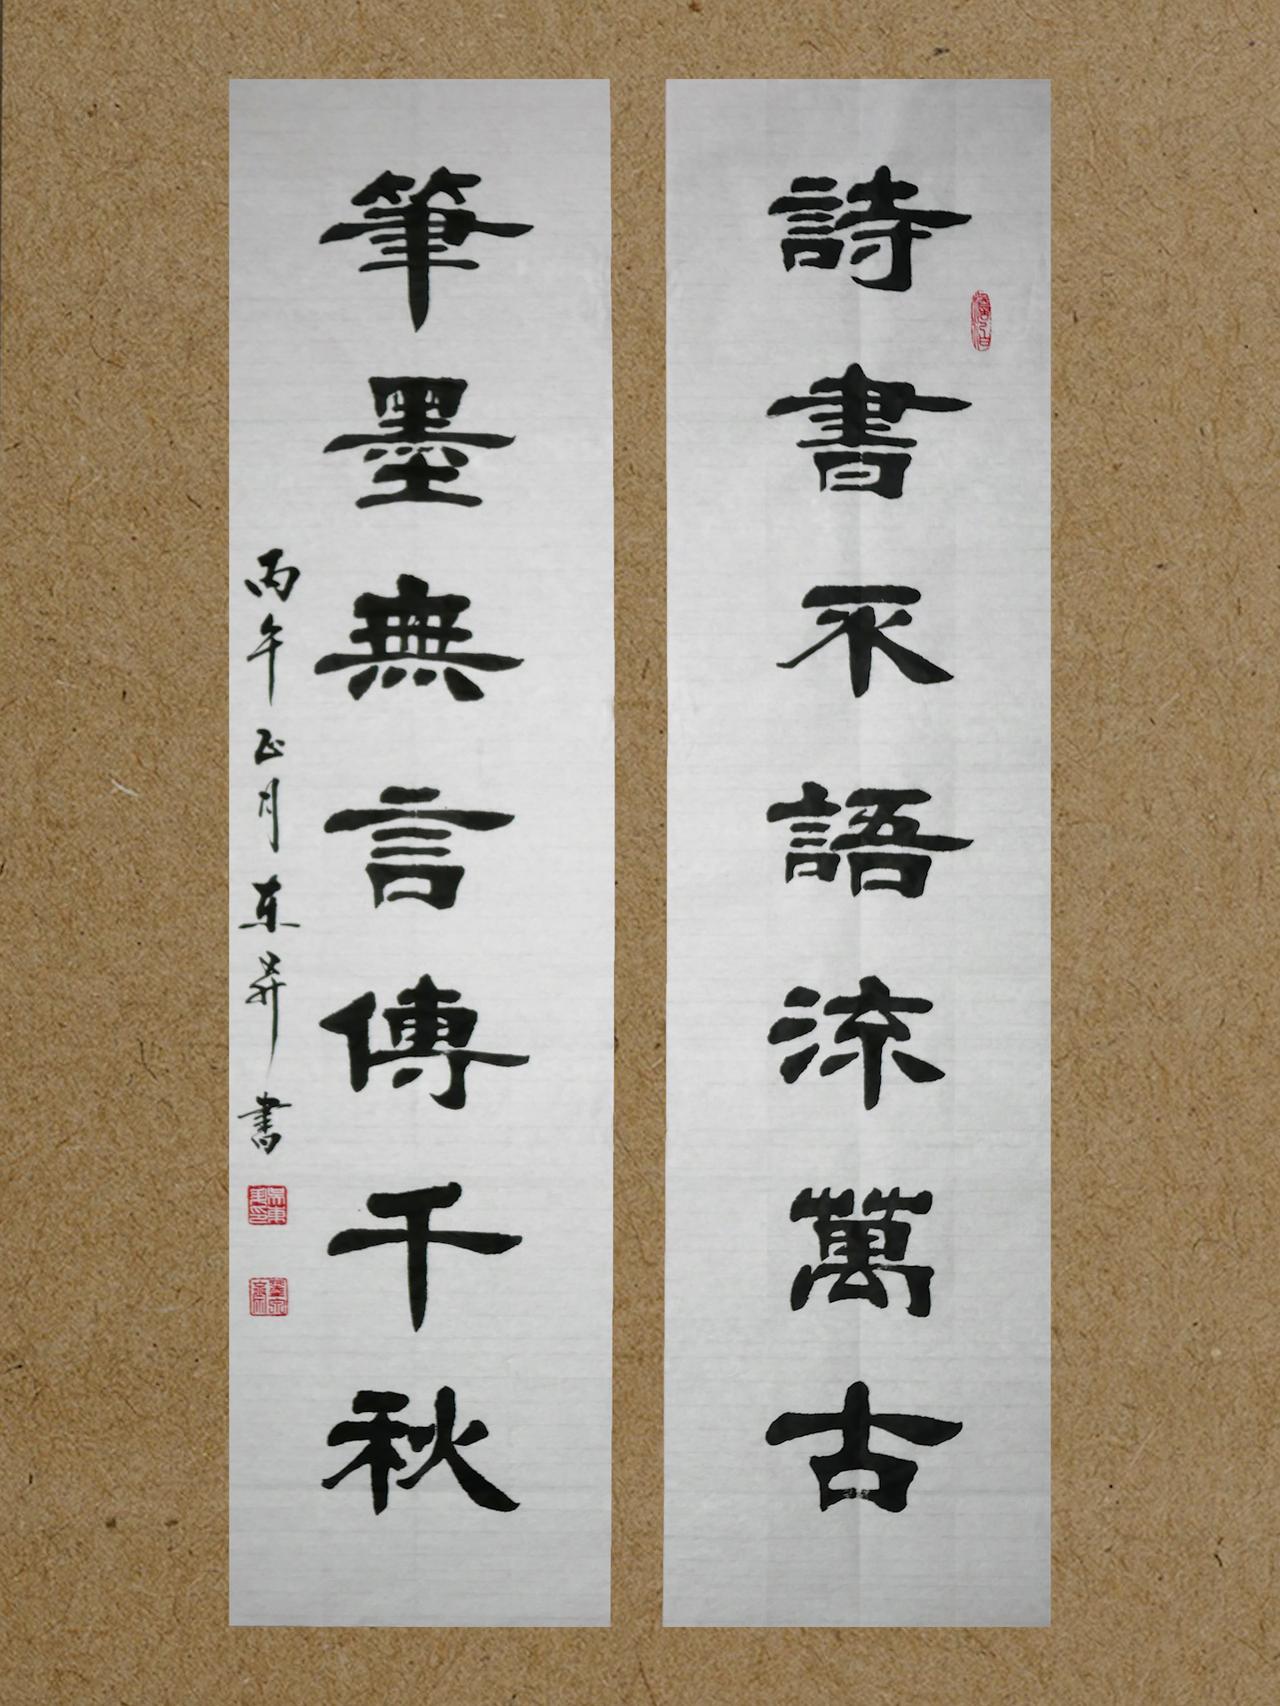 詩書不語流萬古
筆墨無言傳千秋
丙午正月東昇書